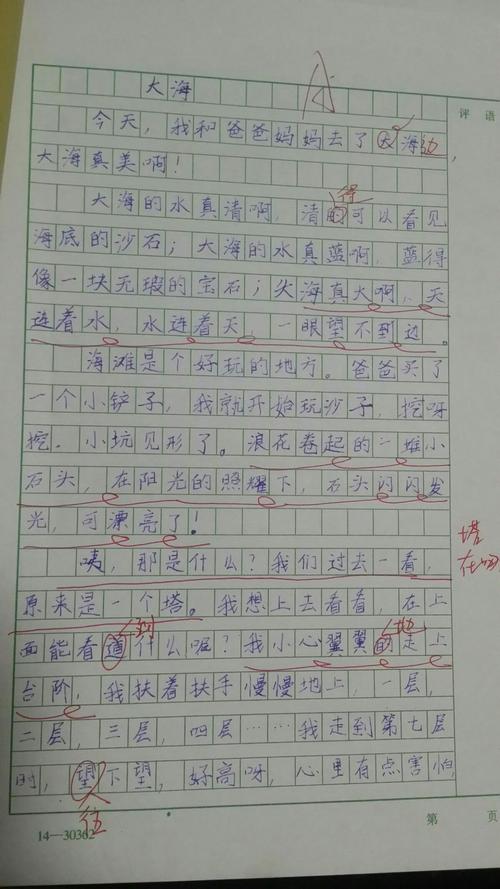 大海
A
今天，我和爸爸妈妈去了大海边，
评语
大海真美啊！
得
大海的水真清啊，清的可以看见
海底的沙石；大海的水真蓝啊，蓝得
像一块无瑕的宝石；大海真大啊，天
连着水，水连着天，一眼望不到边。
海滩是个好玩的地方。爸爸买了
一个小铲子，我就开始玩沙子，挖呀
挖。小坑见形了。浪花卷起的一堆小
石头，在阳光的照耀下，石头闪闪发
光，可漂亮了！
咦，那是什么？我们过去一看，
塔
在
原来是一个塔。我想上去看看，在上
到
地
面能看道什么呢？我小心翼翼的走上
台阶，我扶着扶手慢慢地上，一层，
二层，三层，四层……我走到第七层
时，望下望，好高呀，心里有点害怕，
往
14—30362
第 页